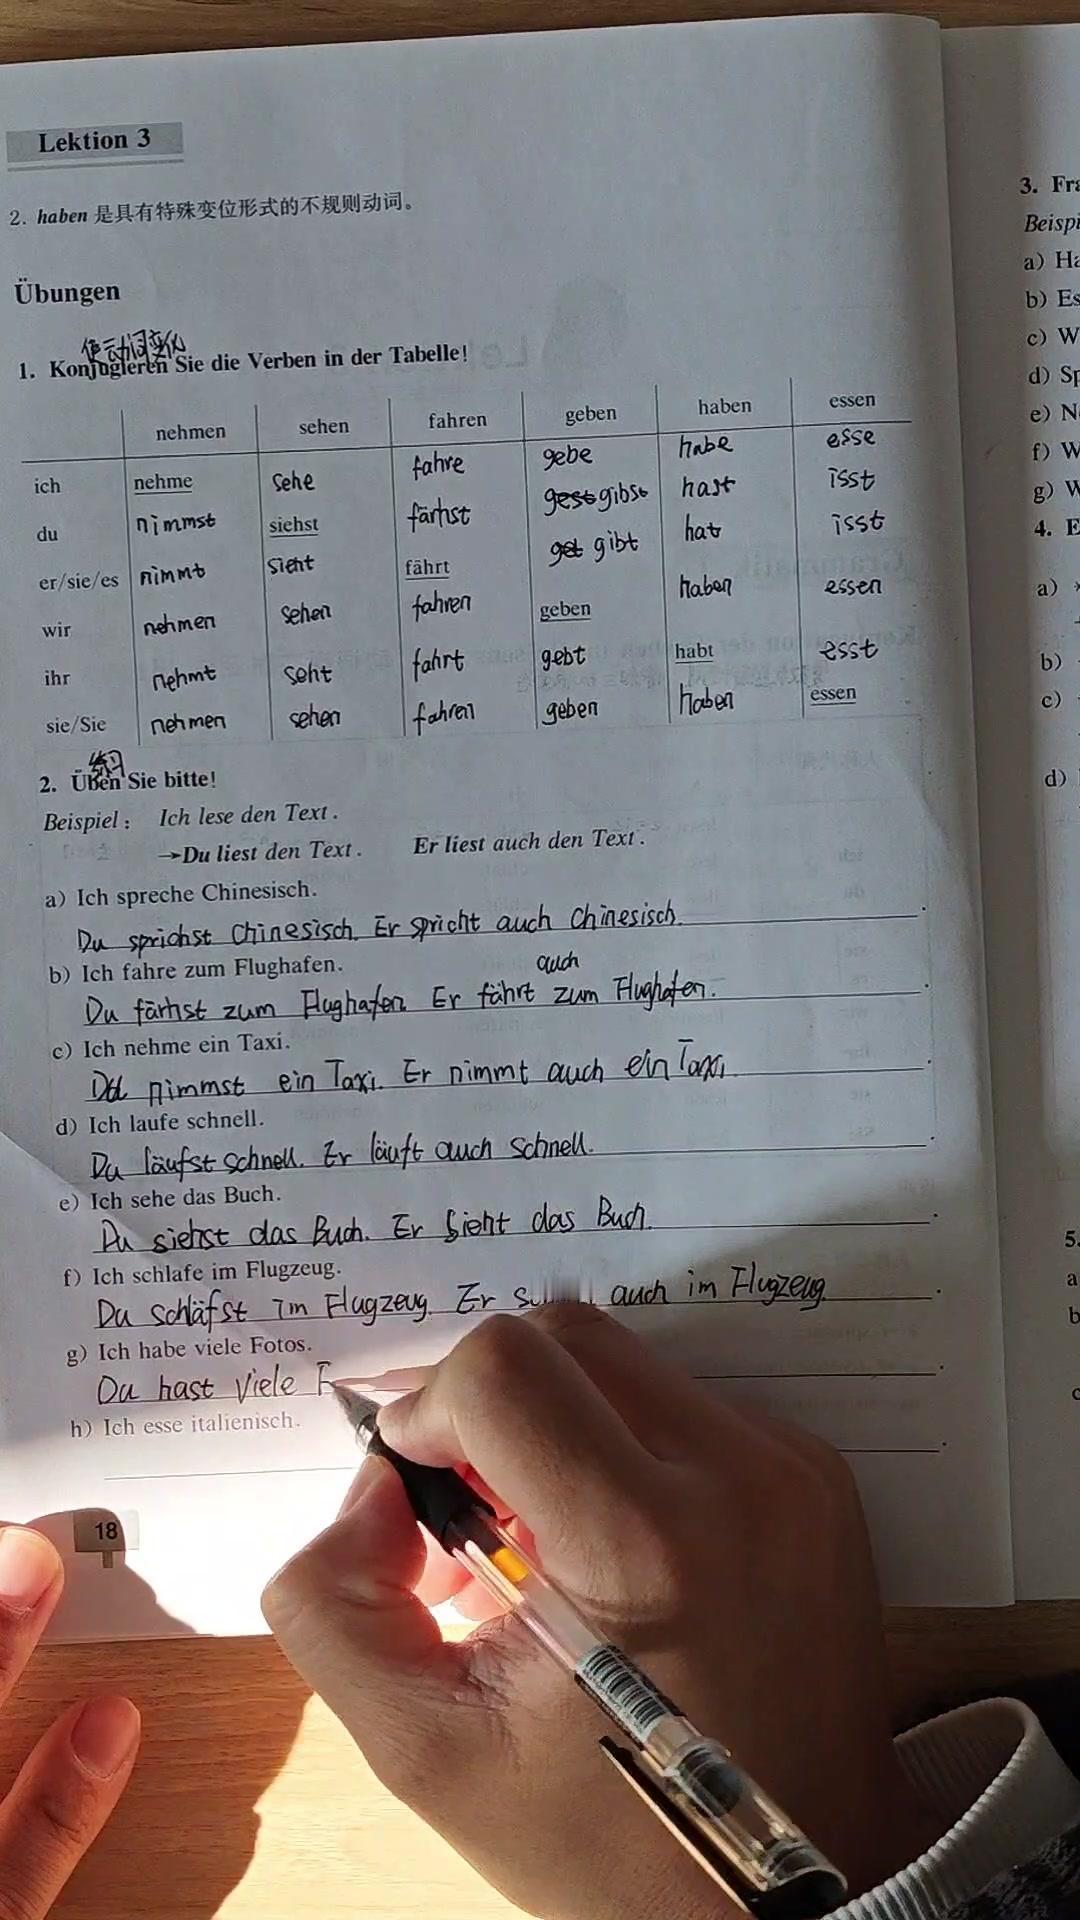 Lektion 3
2. haben 是具有特殊变位形式的不规则动词。
Übungen
使动词变化
1. Konjugieren Sie die Verben in der Tabelle!
nehmen sehen fahren geben haben essen
ich nehme sehe fahre gebe habe esse
du nimmst siehst färhst gest gibst hast isst
er/sie/es nimmt sieht fährt get gibt hat isst
wir nehmen sehen fahren geben haben essen
ihr nehmt seht fahrt gebt habt esst
sie/Sie nehmen sehen fahren geben haben essen
练习
2. Üben Sie bitte!
Beispiel: Ich lese den Text.
→Du liest den Text. Er liest auch den Text.
a) Ich spreche Chinesisch.
Du sprichst Chinesisch. Er spricht auch Chinesisch.
b) Ich fahre zum Flughafen.
auch
Du färhst zum Flughafen. Er fährt zum Flughafen.
c) Ich nehme ein Taxi.
Du nimmst ein Taxi. Er nimmt auch ein Taxi.
d) Ich laufe schnell.
Du läufst schnell. Er läuft auch schnell.
e) Ich sehe das Buch.
Du siehst das Buch. Er sieht das Buch.
f) Ich schlafe im Flugzeug.
Du schläfst im Flugzeug. Er auch im Flugzeug.
g) Ich habe viele Fotos.
Du hast viele F
h) Ich esse italienisch.
18
3. Fra
Beispi
a) Ha
b) Es
c) W
d) Sp
e) N
f) W
g) W
4. E
a)
b)
c)
d)
5.
a
b
c